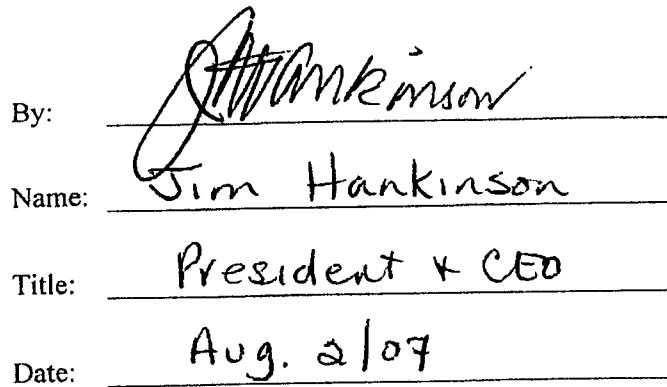 By: JHankinson
Name: Jim Hankinson
Title: President & CEO
Date: Aug. 2/07